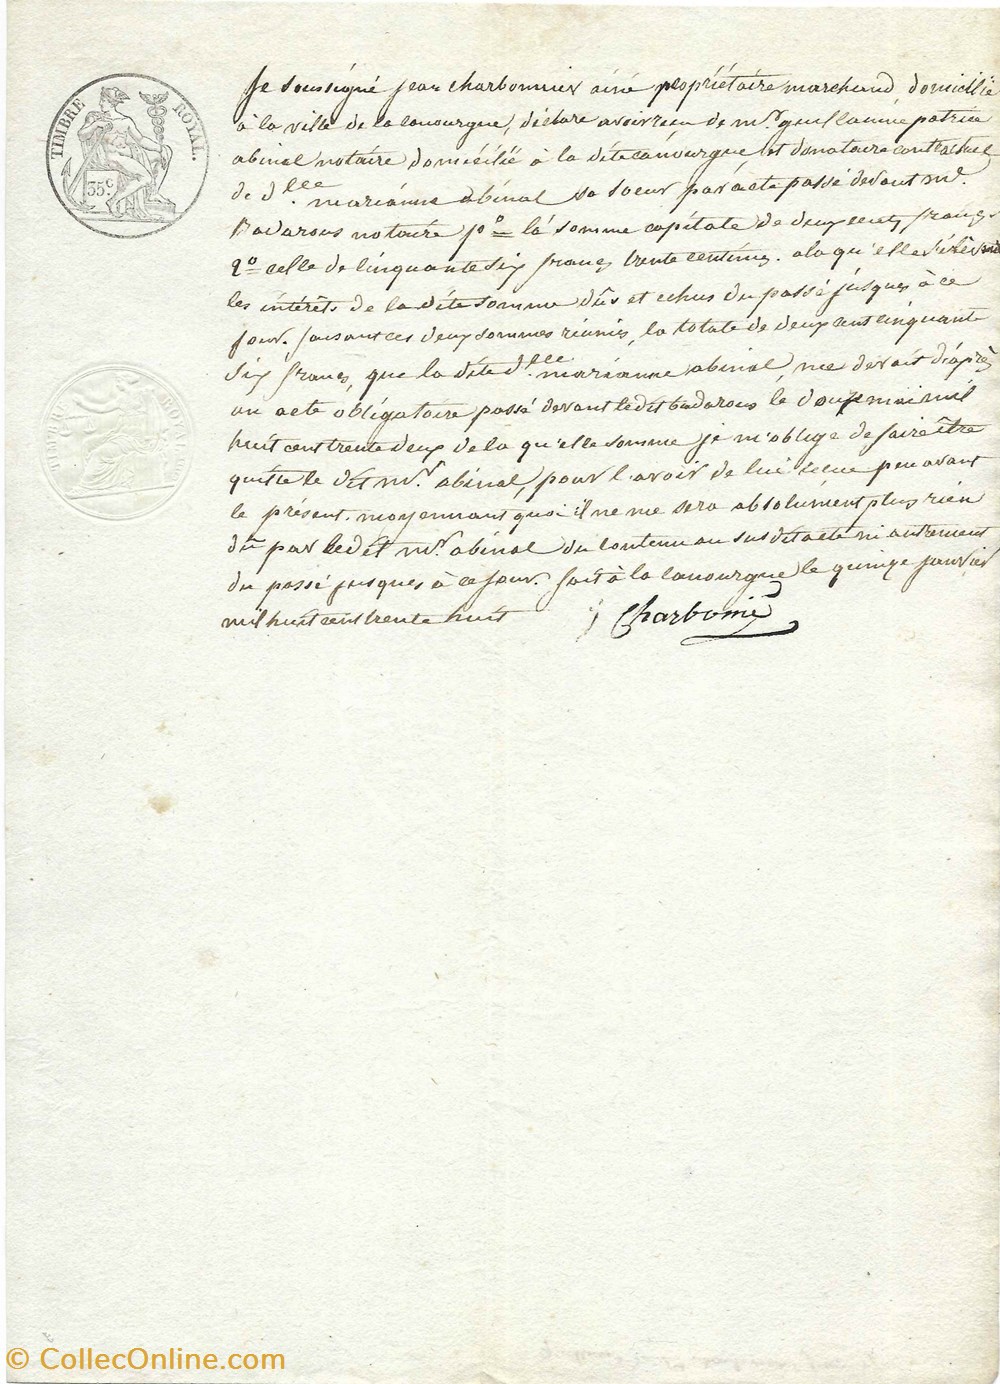 TIMBRE ROYAL.
35 c.
Je soussigné jean charbonnier ainé propriétaire marchand, domicilié
à la ville de la canourgue, déclare avoir reçu de mr. guillaume patrice
abinal notaire domicilié à la dite canourgue, et donataire contractuel
de dlle. marianne abinal sa soeur par acte passé devant me.
Badarous notaire 1o la somme capitale de deux cents francs
2o celle de cinquante six francs trente centimes. a la qu'elle s'élèvent
les intérêts de la dite somme dûs et echus du passé jusques à ce
jour. faisant ces deux sommes réunis, la totale de deux cent cinquante
six francs, que la dite dlle marianne abinal, me devait d'après
un acte obligatoire passé devant le dit badarous le douze mai mil
huit cent trente deux de la qu'elle somme je m'oblige de faire être
quitte le dit mr. abinal, pour l'avoir de lui reçue peu avant
le présent. moyennant quoi il ne me sera absolument plus rien
dû par le dit mr. abinal du contenu au susdit acte ni autrement
du passé jusques à ce jour. fait à la canourgue le quinze janvier
mil huit cent trente huit
j Charbonié
© CollecOnline.com